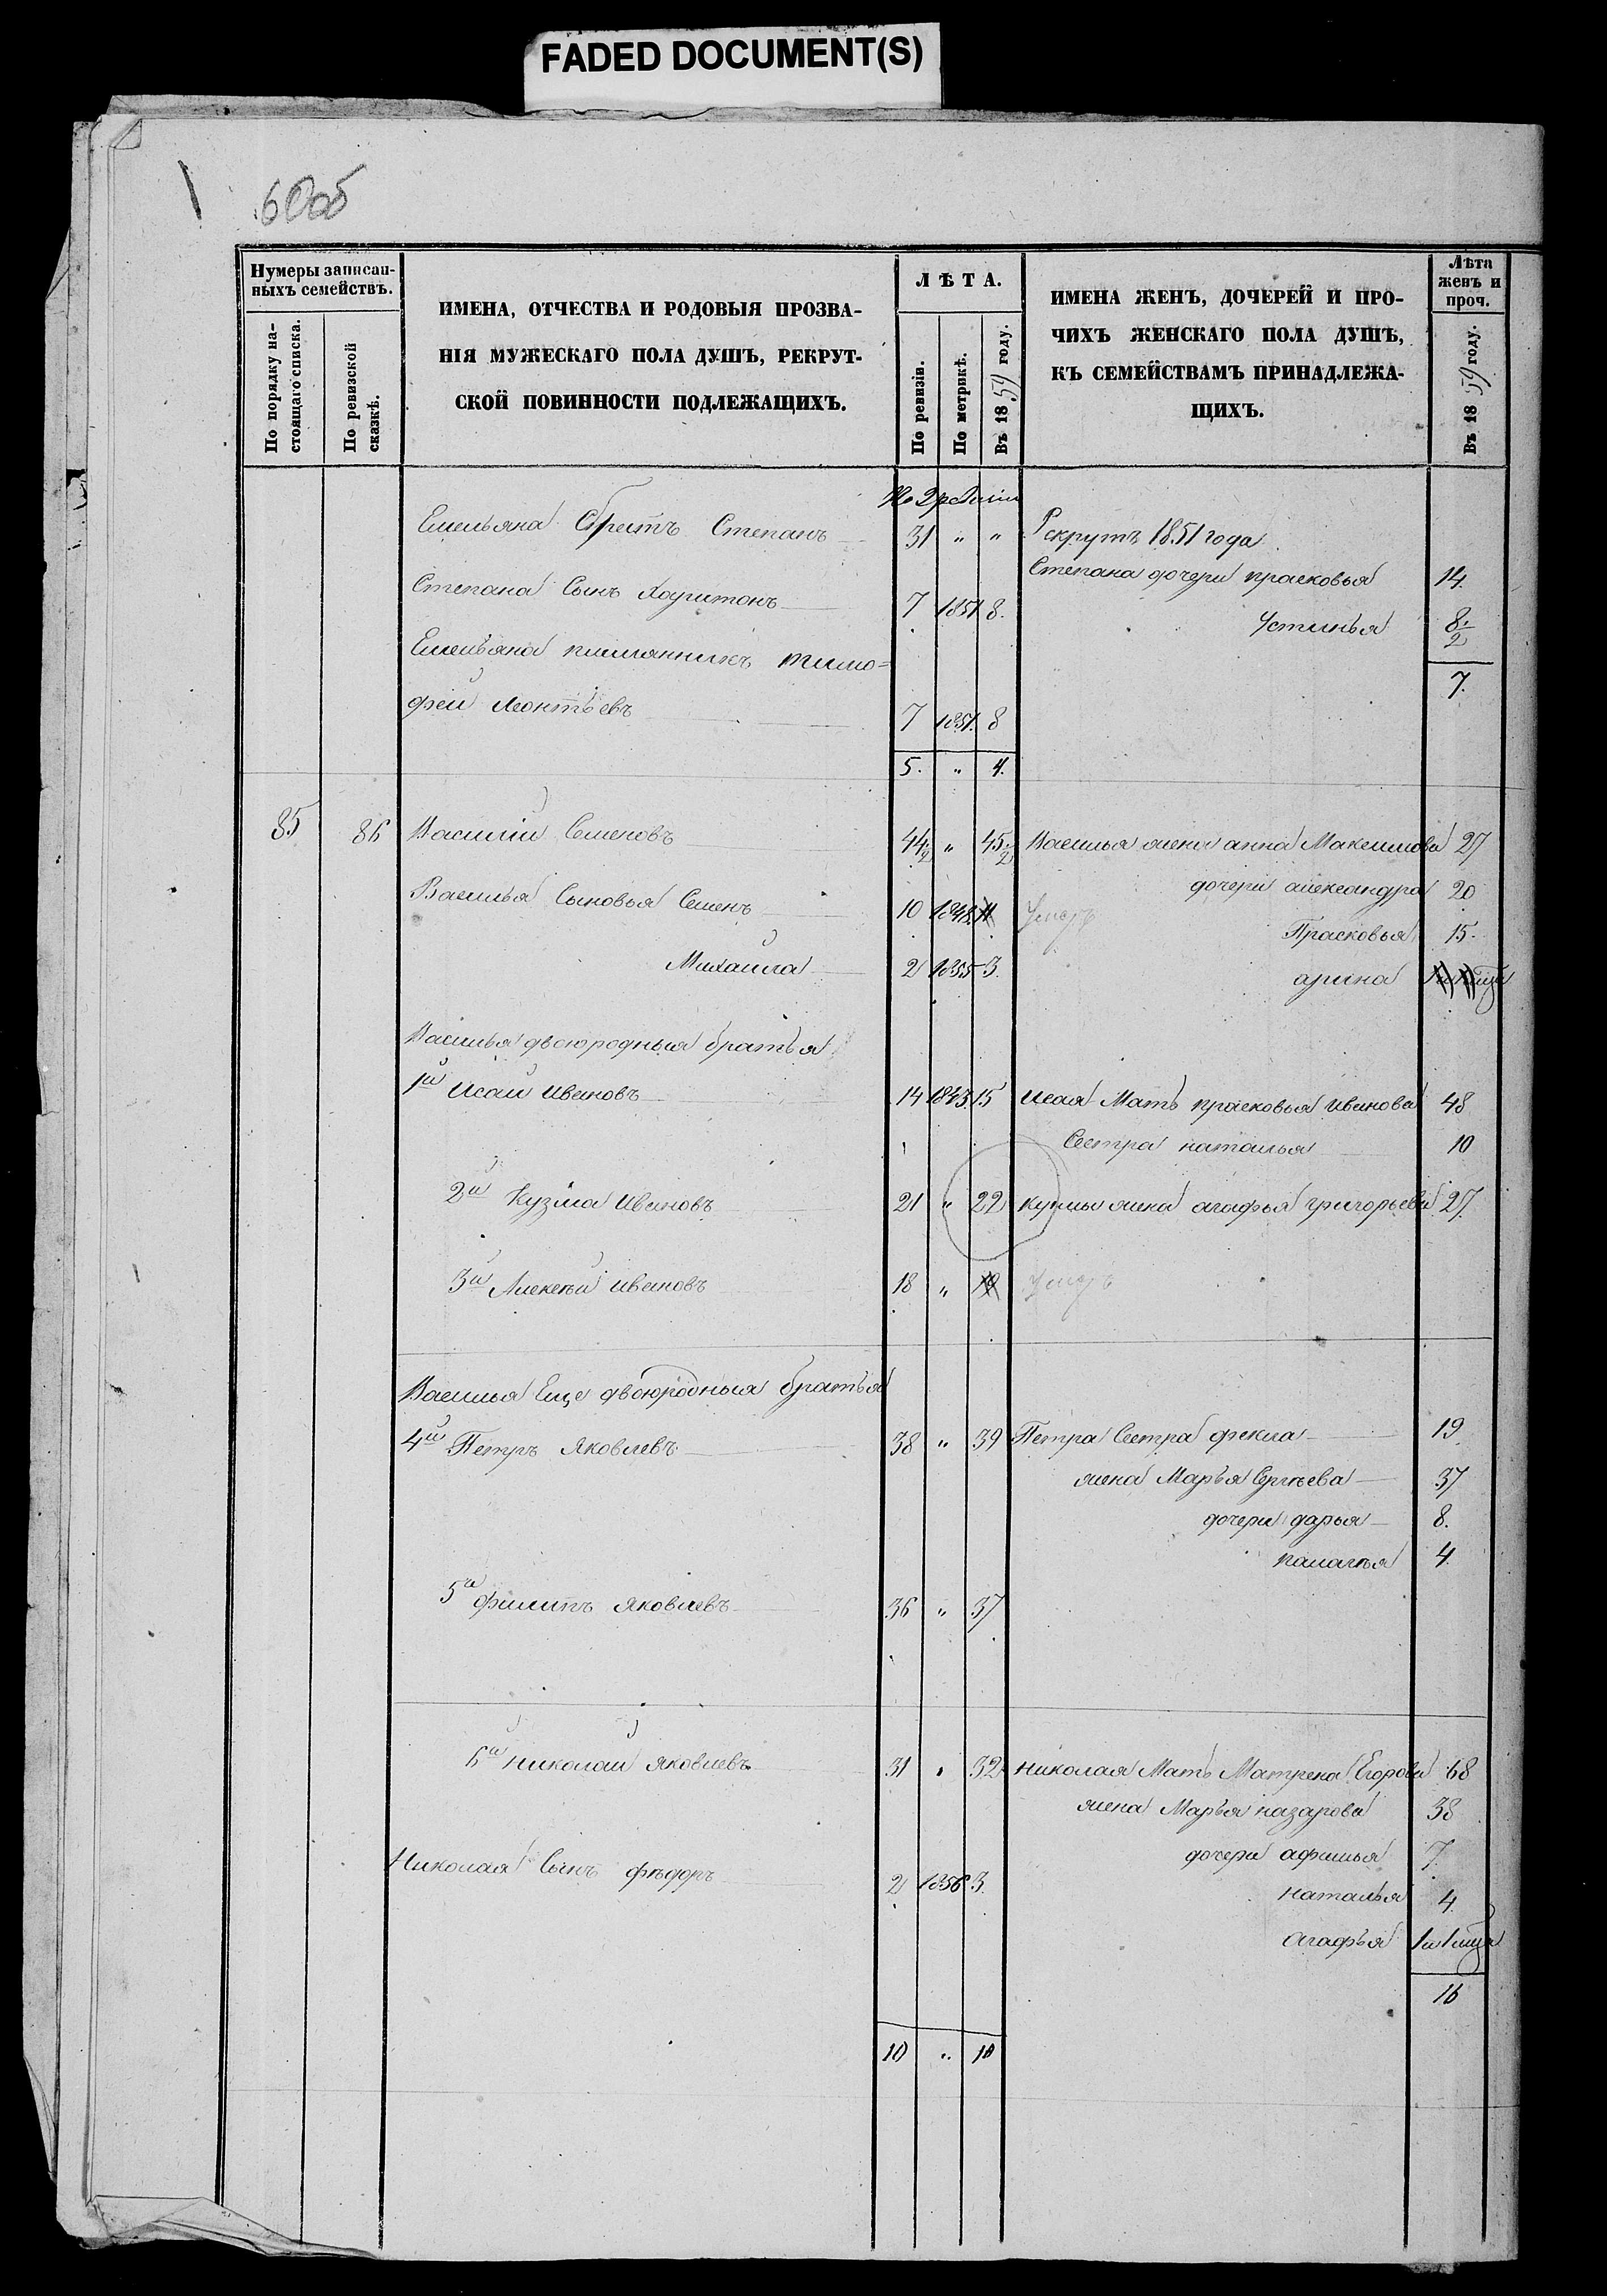 FADED DOCUMENT(S)
60об
Нумеры записан-
ныхъ семействъ.
По порядку на-
стоящаго списка.
По ревизской
сказкѣ.
ИМЕНА, ОТЧЕСТВА И РОДОВЫЯ ПРОЗВА-
НІЯ МУЖЕСКАГО ПОЛА ДУШЪ, РЕКРУТ-
СКОЙ ПОВИННОСТИ ПОДЛЕЖАЩИХЪ.
ЛѢТА.
По ревизіи.
По метрикѣ.
Въ 1859 году.
ИМЕНА ЖЕНЪ, ДОЧЕРЕЙ И ПРО-
ЧИХЪ ЖЕНСКАГО ПОЛА ДУШЪ,
КЪ СЕМЕЙСТВАМЪ ПРИНАДЛЕЖА-
ЩИХЪ.
Лѣта
женъ и
проч.
Въ 1859 году.
По 9 ревизіи
Емельяна братъ Степанъ 31 " " Рекрутъ 1851 года
Степана дочери прасковья 14.
Степана Сынъ Харитонъ 7 1851 8.
Устинья 8 1/2
Емельяна племянникъ тимо=
7.
фей Леонтьевъ 7 1851. 8
5. " 4.
85 86 Василій Семеновъ 44 1/2 " 45 1/2 Василья жена анна Максимова 27
дочери александра 20
Василья Сыновья Семенъ 10 1848. 11 Умеръ
Прасковья 15.
Михаила 2 1855 3.
арина
Василья двоюродныя братья
1й Исай Ивановъ 14 1843. 15 Исая Мать прасковья иванова 48
Сестра наталья 10
2й Кузма Ивановъ 21 " 22 кузмы жена агафья григорьева 27.
3й Алексѣй Ивановъ 18 " 19 Умеръ
Василья Еще двоюродныя братья
4й Петръ Яковлевъ 38 " 39 Петра Сестра фекла 19
жена Марья Сергѣева 37
дочери дарья 8.
палагѣя 4
5й филипъ яковлевъ 36 " 37
6й николай яковлевъ 31 " 32 николая Мать Матрена Егорова 68
жена Марья назарова 38
дочери афимья 7.
Николая Сынъ фѣдоръ 2 1856 3.
наталья 4
агафья
16
10 " 10